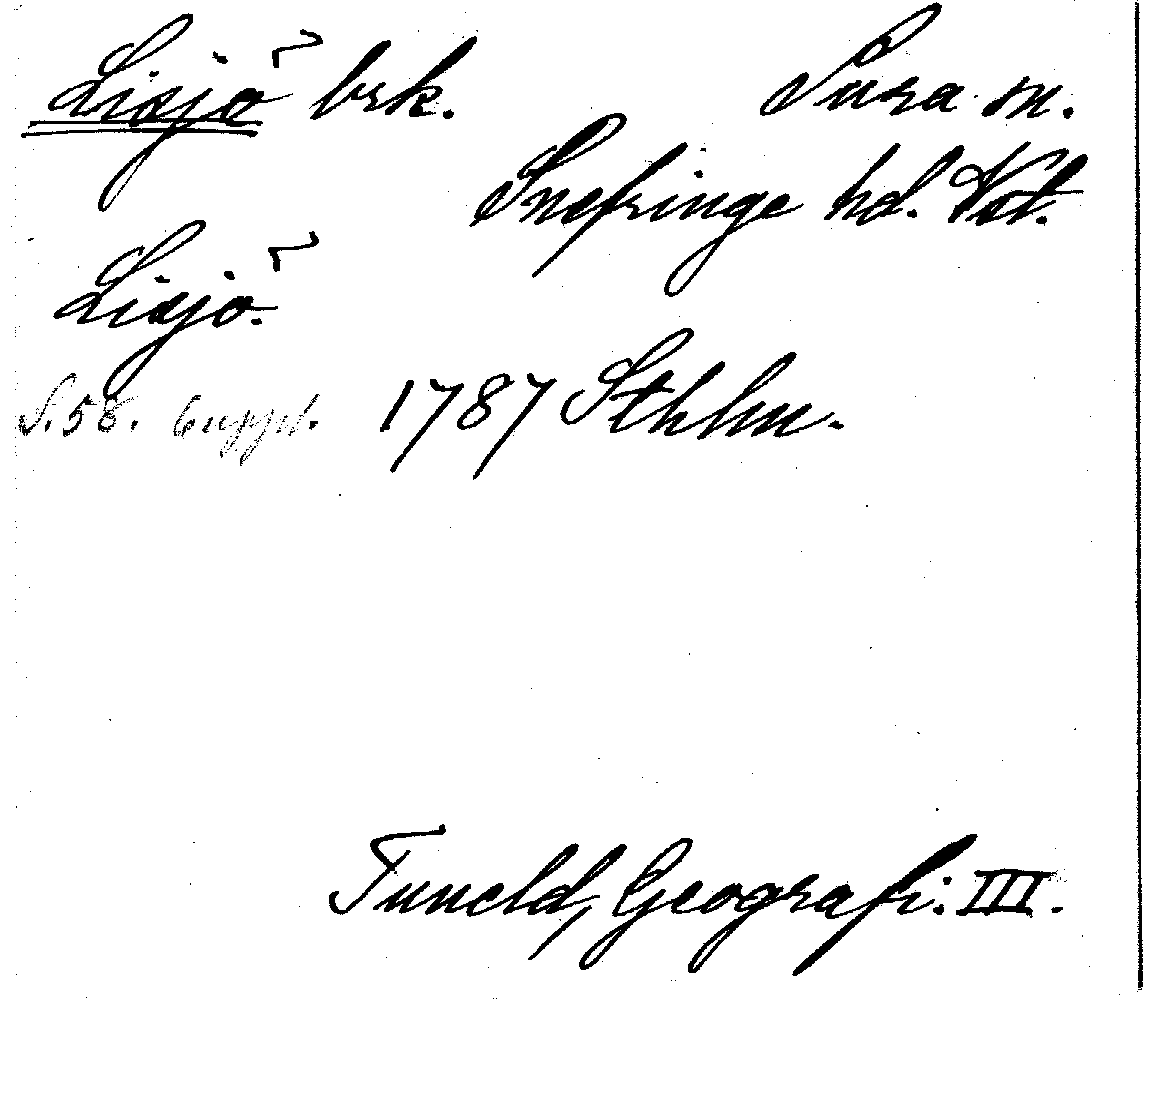 Lisjö brk. Sura sn.
Snefringe hd. Vstl.
Lisjö.
S. 58. 6 uppl. 1787 Sthlm.
Tuneld, Geografi. III.